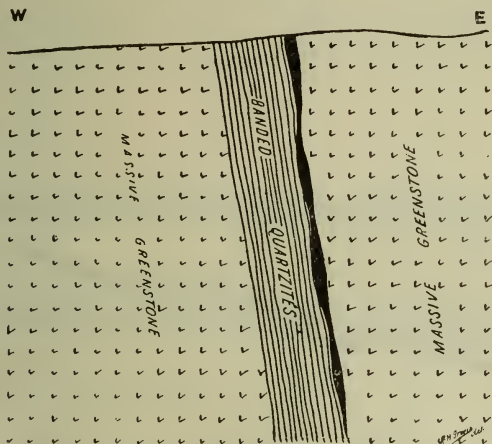 W
E
MASSIVE GREENSTONE
BANDED QUARTZITES
MASSIVE GREENSTONE